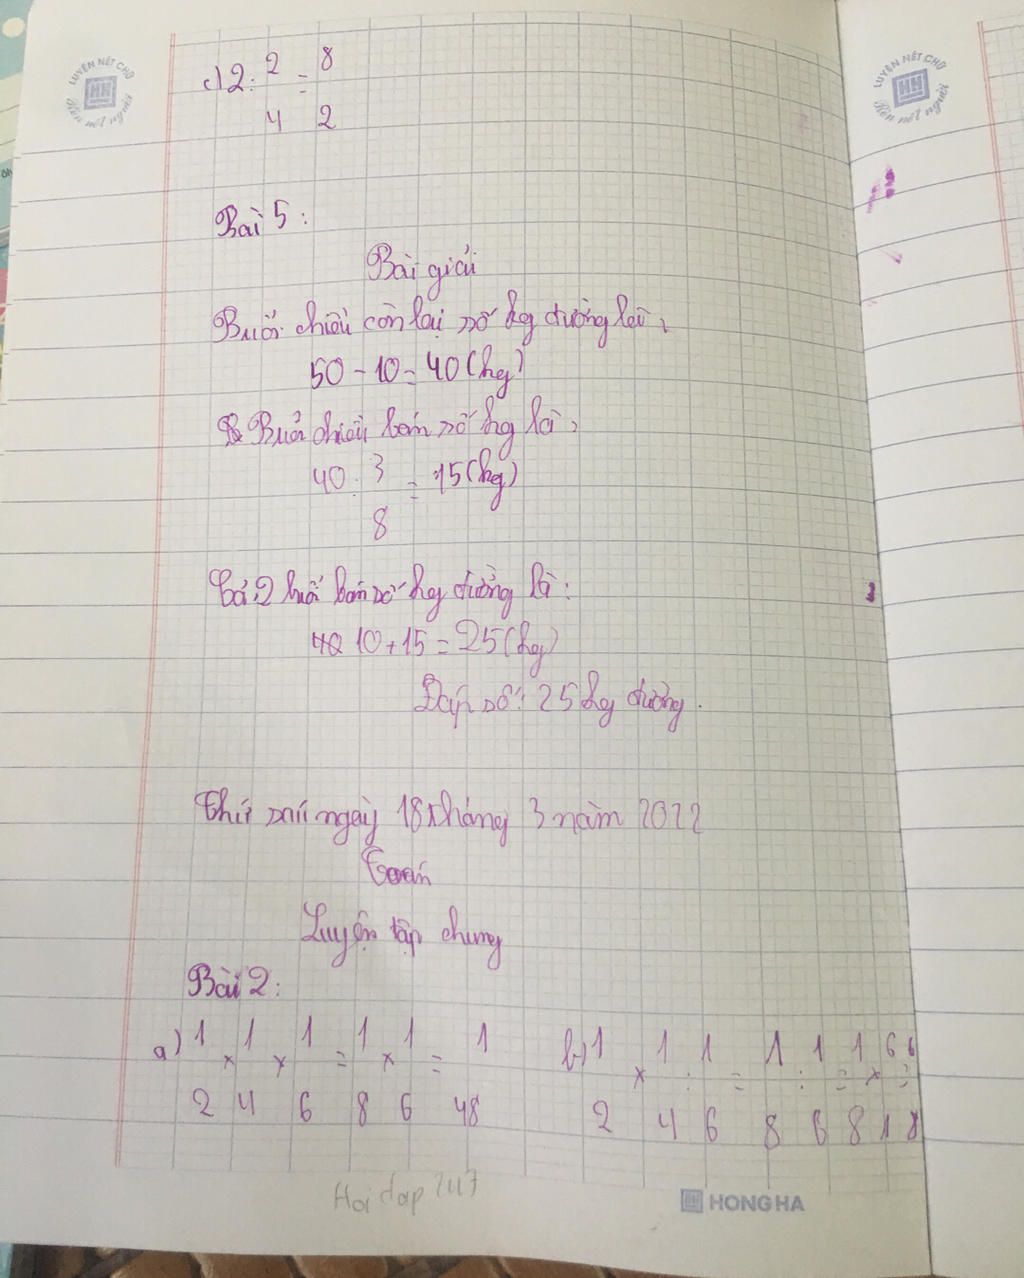 LUYỆN NÉT CHỮ
Rèn nết người
LUYỆN NÉT CHỮ
Rèn nết người
c) 2 : 2/4 = 8/2
Bài 5:
Bài giải
Buổi chiều còn lại số kg đường là:
50 - 10 = 40 (kg)
Buổi chiều bán số kg là:
40 . 3/8 = 15 (kg)
Cả 2 buổi bán số kg đường là:
10 + 15 = 25 (kg)
Đáp số: 25 kg đường.
Thứ sáu ngày 18 tháng 3 năm 2022
Toán
Luyện tập chung
Bài 2:
a) 1/2 × 1/4 × 1/6 = 1/8 × 1/6 = 1/48 b) 1/2 × 1/4 : 1/6 = 1/8 : 1/6 = 1/8 × 6/1 = 6/8
Hoidap247
HONG HA